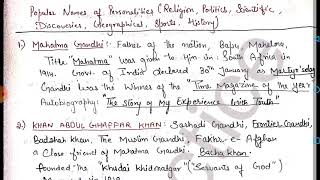 Popular Names of Personalities (Religion, Politics, Scientific
Discoveries, Geographical, Sports, History)
1) Mahatma Gandhi: Father of the nation, Bapu, Mahatma,
Title "Mahatma" was given to Him in South Africa in
1914. Govt. of India declared 30th January as Martyr's day
Gandhi was the Winner of the "Time Magazine of the year"
Autobiography: "The Story of My Experience With Truth"
2) KHAN ABDUL GHAFFAR KHAN: Sarhadi Gandhi, Frontier Gandhi,
Badshah Khan, The Muslim Gandhi, Fakhr-e-Afghan
a Close friend of Mahatma Gandhi. Bacha khan.
founded the "Khudai khidmatgar" ("Servants of God")